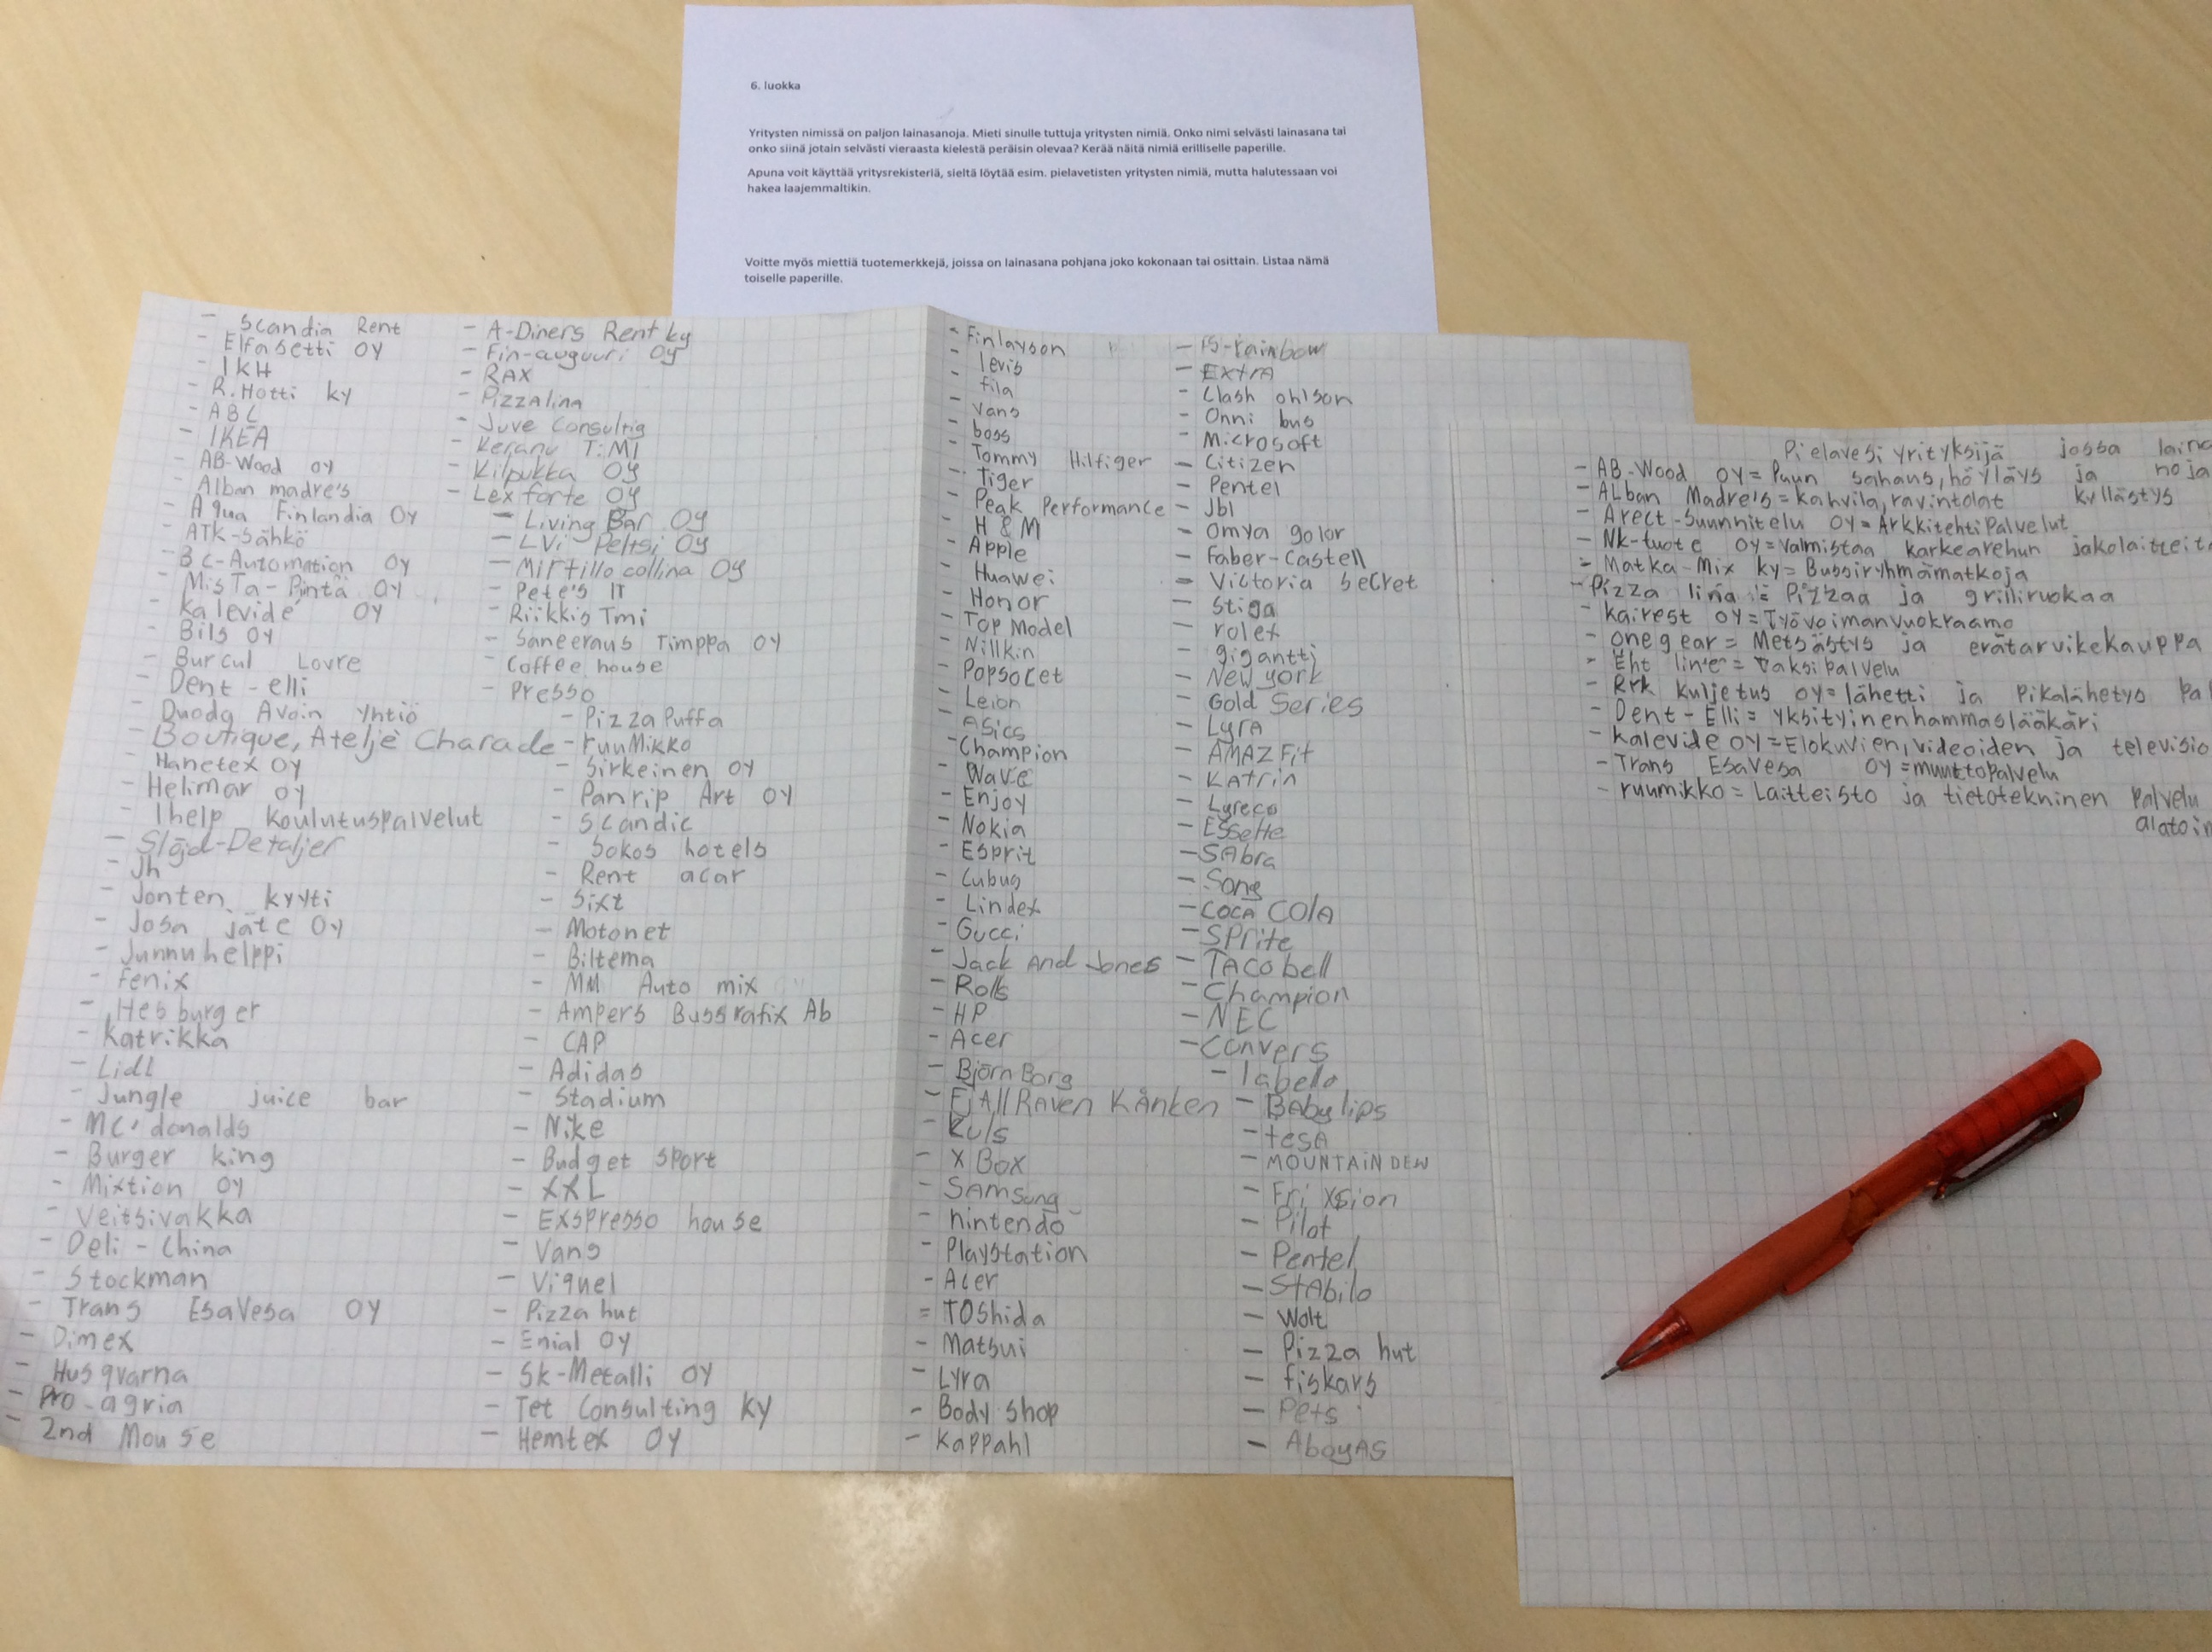 6. luokka
Yritysten nimissä on paljon lainasanoja. Mieti sinulle tuttuja yritysten nimiä. Onko nimi selvästi lainasana tai
onko siinä jotain selvästi vieraasta kielestä peräisin olevaa? Kerää näitä nimiä erilliselle paperille.
Apuna voit käyttää yritysrekisteriä, sieltä löytää esim. pielavetisten yritysten nimiä, mutta halutessaan voi
hakea laajemmaltikin.
Voitte myös miettiä tuotemerkkejä, joissa on lainasana pohjana joko kokonaan tai osittain. Listaa nämä
toiselle paperille.
- Scandia Rent
- Elfasetti OY
- IKH
- R.Hotti ky
- ABC
- IKEA
- AB-Wood oy
- Alban madre's
- Aqua Finlandia Oy
- ATK-sähkö
- BC-Automation OY
- MisTa-Pintä OY
- kalevide OY
- Bils OY
- Burcul Lovre
- Dent-elli
- Duoda Avain Yhtiö
- Boutique, Ateljè Charade
- Hanetex OY
- Helimar oy
- Ihelp koulutuspalvelut
- Slöjd-Detaljer
- Jh
- Jonten kyyti
- Josa jäte OY
- Junnuhelppi
- fenix
- Hesburger
- Katrikka
- Lidl
- Jungle juice bar
- MC'donalds
- Burger king
- Mixtion OY
- Veitsivakka
- Deli-China
- Stockman
- Trans EsaVesa OY
- Dimex
- Husqvarna
- Pro-agria
- 2nd Mouse
- A-Diners Rent ky
- Fin-auguuri OY
- RAX
- Pizzalina
- Juve Consultig
- Keranu T:MI
- Kilpukka OY
- Lex forte OY
- Living Bar OY
- LVi Peltsi OY
- Mirtillo collina OY
- Pete's IT
- Riikkis Tmi
- Saneeraus Timppa OY
- Coffee house
- Presso
- Pizza Puffa
- ruuMikko
- Sirkeinen OY
- Panrip Art OY
- Scandic
- Sokos hotels
- Rent acar
- Sixt
- Motonet
- Biltema
- MM Auto mix
- Ampers Bussrafix Ab
- CAP
- Adidas
- Stadium
- Nike
- Budget sport
- XXL
- EXspresso house
- Vans
- Viquel
- Pizza hut
- Enial OY
- Sk-Metalli OY
- Tet Consulting Ky
- Hemtex OY
- Finlayson
- levis
- fila
- Vans
- boss
- Tommy Hilfiger
- Tiger
- Peak Performance
- H&M
- Apple
- Huawei
- Honor
- Top Model
- Nillkin
- Popsocet
- Leion
- Asics
- Champion
- Wave
- Enjoy
- Nokia
- Esprit
- Cubus
- Lindex
- Gucci
- Jack And Jones
- Rolls
- HP
- Acer
- Björn Borg
- FjällRäven Kånken
- Kuls
- X Box
- SAMSung
- nintendo
- Playstation
- Acer
= TOShida
- Matsui
- Lyra
- Body shop
- Kappahl
- is-rainbow
- EXtrA
- Clash ohlson
- Onni bus
- Microsoft
- Citizen
- Pentel
- Jbl
- Omya golor
- Faber-Castell
- Victoria secret
- Stiga
- rolex
- gigantti
- New york
- Gold Series
- LyrA
- AMAZFit
- KAtrin
- Lyreco
- ESSelte
- SAbra
- Song
- COCA COlA
- SPrite
- TACO bell
- Champion
- NEC
- Convers
- labello
- BAby lips
- tesA
- MOUNTAiN DEW
- Fri Xsion
- Pilot
- Pentel
- StAbilo
- Wolt
- Pizza hut
- fiskars
- Pets
- AboyAS
Pielavesi yrityksijä jossa laina
- AB-Wood OY = Puun sahaus, höyläys ja
kyllästys
- ALban Madre's = kahvila, ravintolat
- Arect-Suunnitelu OY = Arkkitehtipalvelut
- Nk-tuote OY = Valmistaa karkearehun jakolaitteit
- Matka-Mix ky = Bussiryhmämatkoja
- Pizza lina = Pizzaa ja grilliruokaa
- kairest OY = Työvoimanvuokraamo
- one gear = Metsästys ja erätarvikekauppa
- Eht line = taksipalvelu
- Rrk kuljetus oy = lähetti ja pikalähetys pal
- Dent-Elli = yksityinenhammaslääkäri
- kalevide OY = Elokuvien, videoiden ja televisio
- Trans EsaVesa OY = muuttopalvelu
- ruumikko = Laitteisto ja tietotekninen palvelu
alatoin